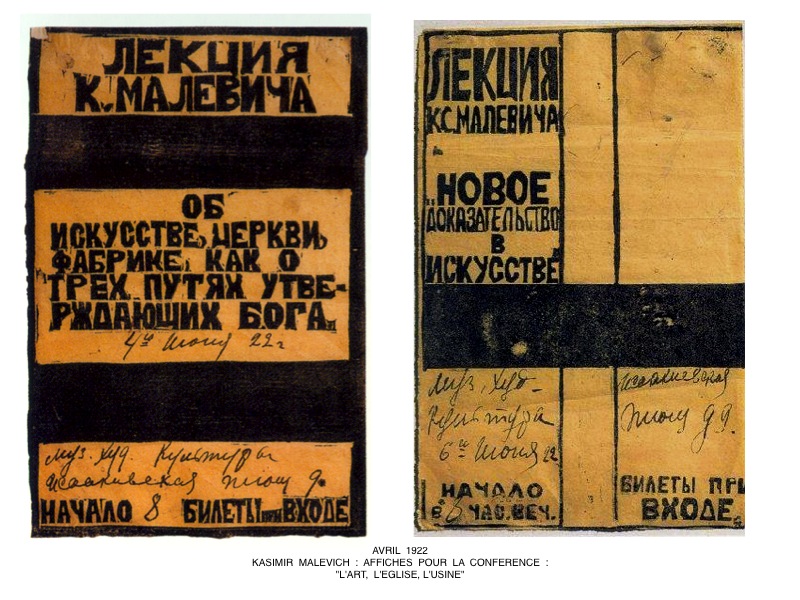 ЛЕКЦИЯ
К. МАЛЕВИЧА
ОБ
ИСКУССТВЕ, ЦЕРКВИ,
ФАБРИКЕ, КАК О
ТРЕХ ПУТЯХ УТВЕ-
РЖДАЮЩИХ БОГА.
4го Июня 22 г
Муз. Худ. Культуры
Исаакиевская площ 9.
НАЧАЛО 8 БИЛЕТЫ при ВХОДЕ
ЛЕКЦИЯ
КС. МАЛЕВИЧА
„НОВОЕ
ДОКАЗАТЕЛЬСТВО
В
ИСКУССТВЕ"
Муз. Худ-
культуры
6го Июня 22
НАЧАЛО
В 8 ЧАС. ВЕЧ.
Исаакиевская
площ
БИЛЕТЫ ПРИ
ВХОДЕ.
AVRIL 1922
KASIMIR MALEVICH : AFFICHES POUR LA CONFERENCE :
"L'ART, L'EGLISE, L'USINE"